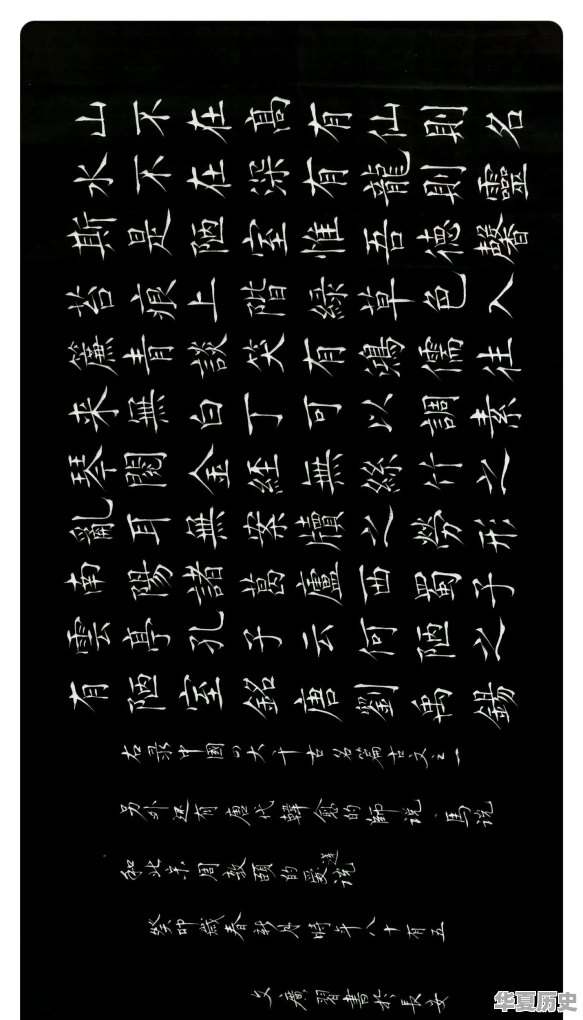 山不在高有仙則名
水不在深有龍則靈
斯是陋室惟吾德馨
苔痕上階綠草色入
簾青談笑有鴻儒往
来無白丁可以調素
琴閱金経無絲竹之
亂耳無案牘之勞形
南陽諸葛廬西蜀子
雲亭孔子云何陋之
有陋室銘唐劉禹錫
右录中國四大千古名篇古文之一
另外还有唐代韓愈的師说、馬说
和北宋周敦頤的愛莲说
癸卯歲春新月時年八十有五
文廣習書於長安
华夏历史